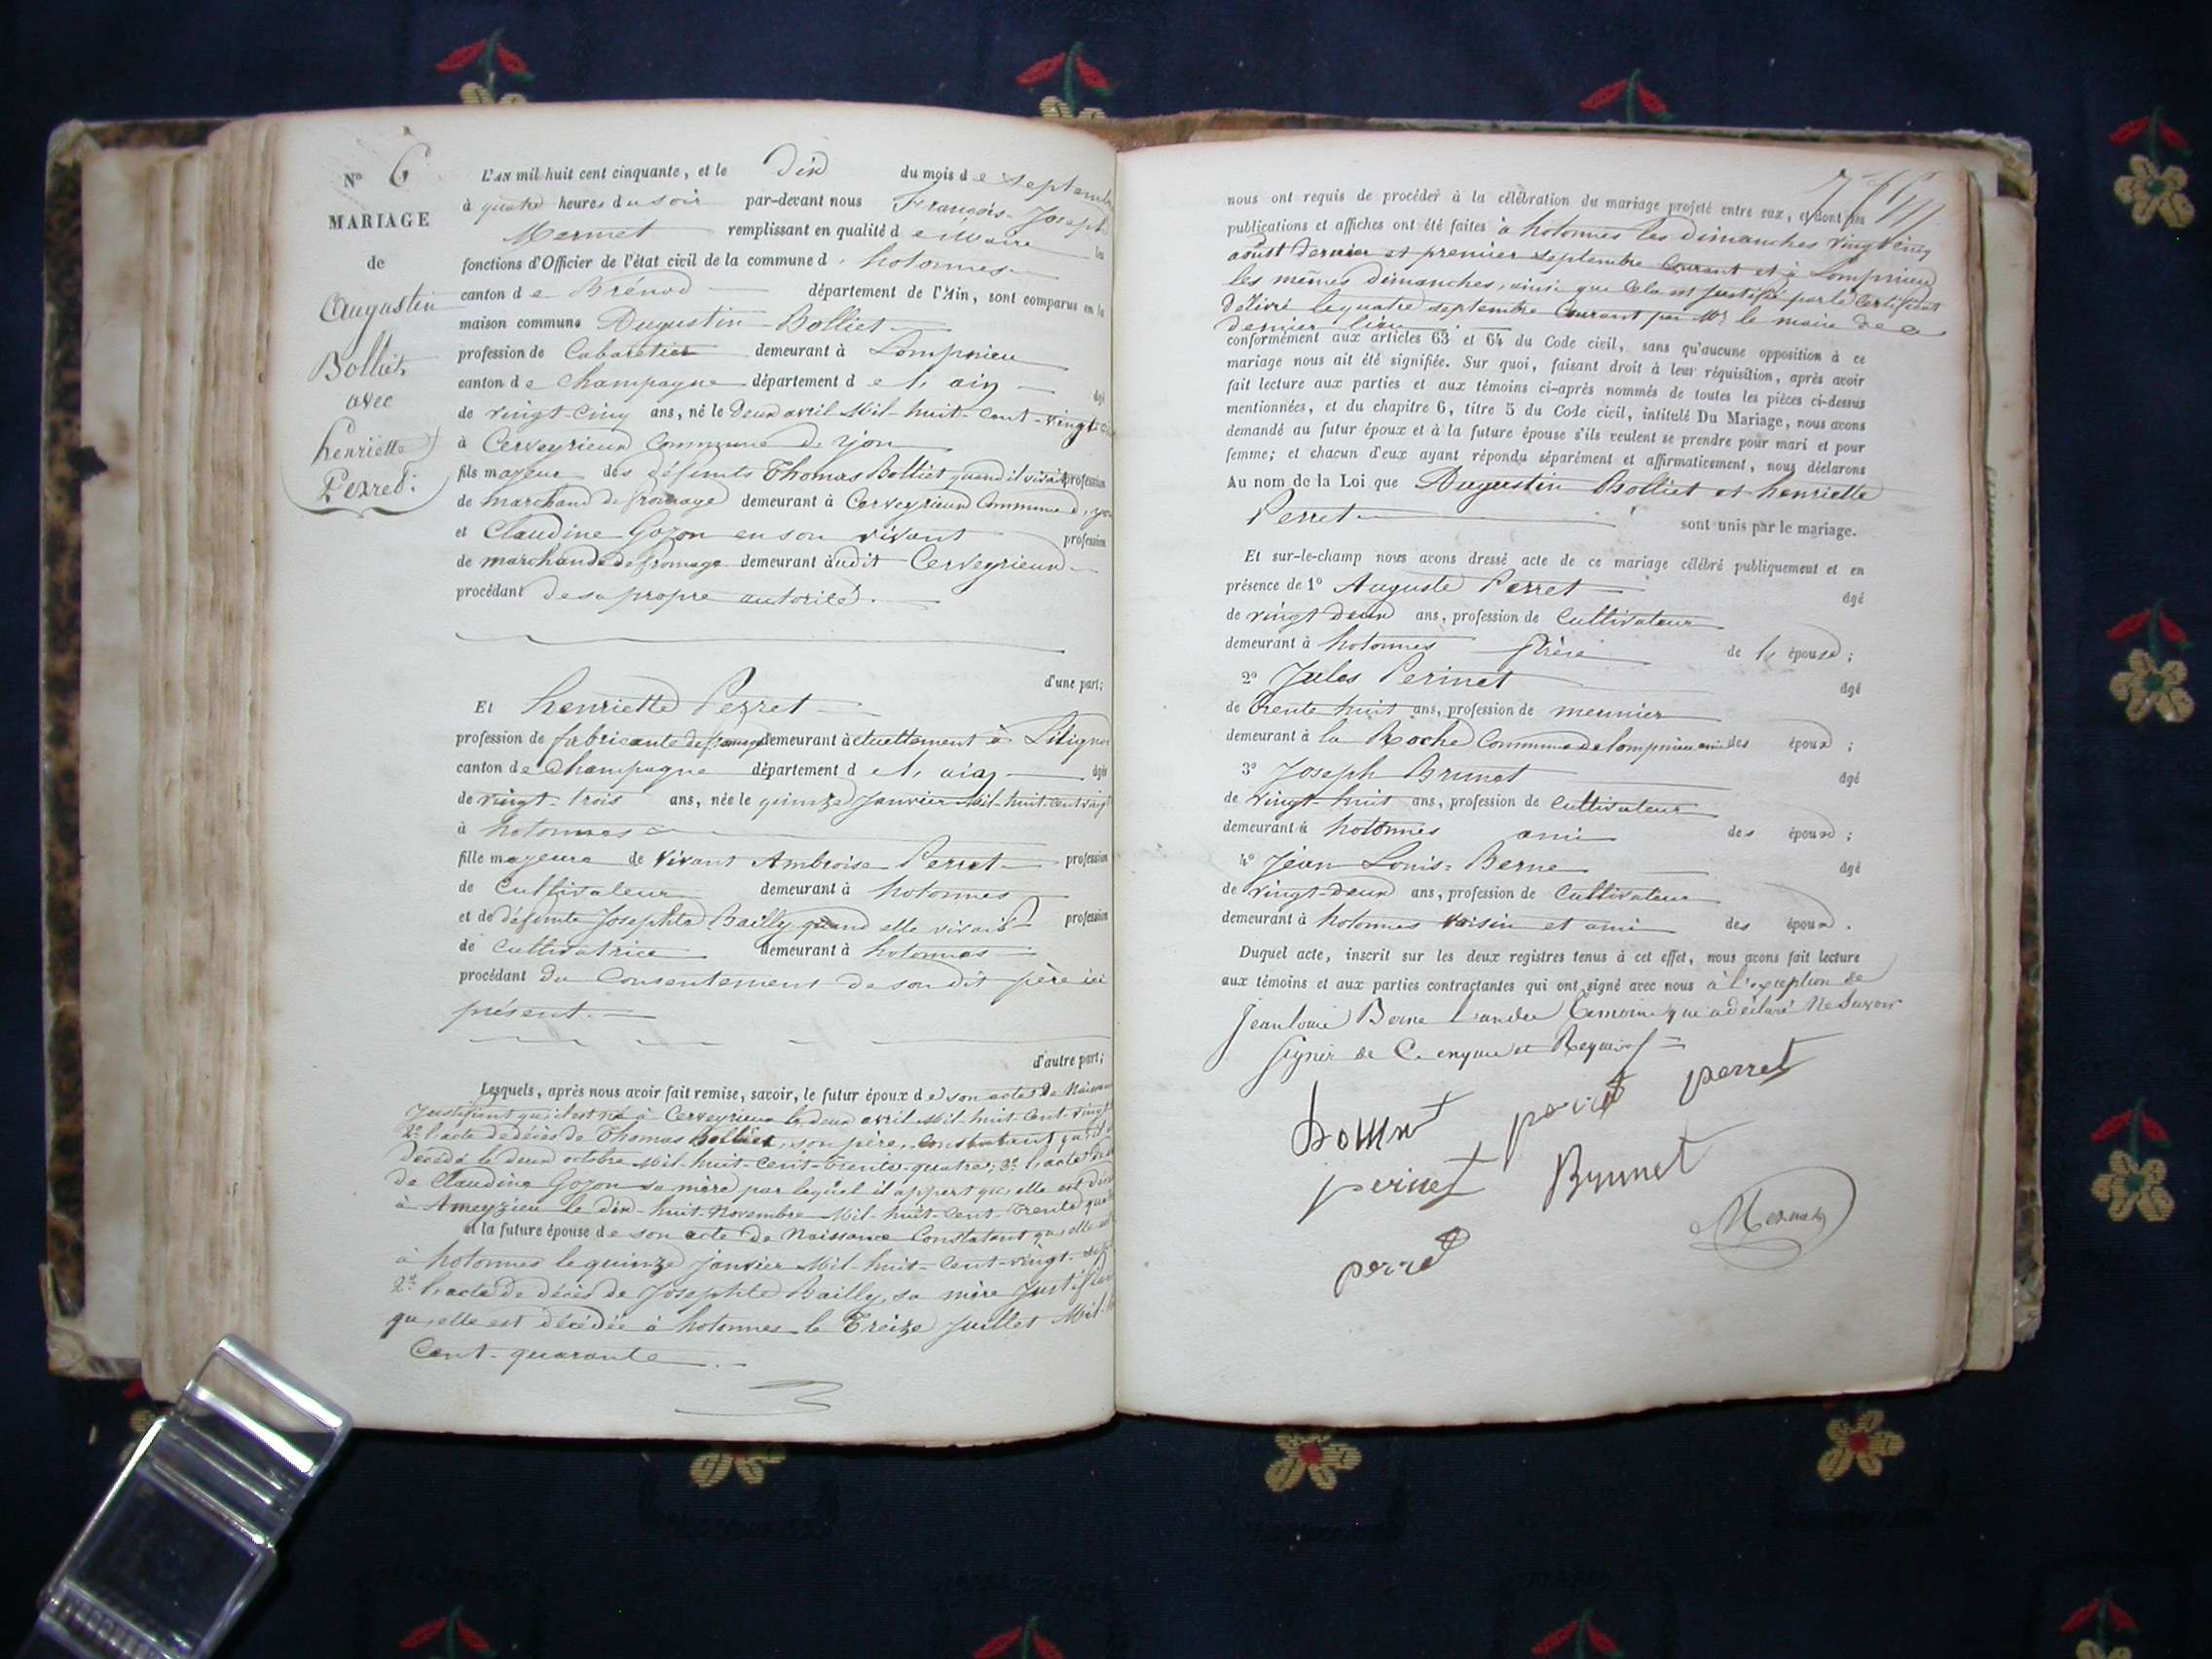 N° 6
MARIAGE
de
Augustin
Bolliet
avec
henriette
Perret
L'AN mil huit cent cinquante, et le dix du mois de septembre
à quatre heures du soir par-devant nous François-Joseph
Mermet remplissant en qualité de Maire les
fonctions d'Officier de l'état civil de la commune d' hotonnes
canton de Brénod département de l'Ain, sont comparus en la
maison commune Augustin Bolliet
profession de Cabaretier demeurant à Lompnieu
canton de Champagne département de l'ain âgé
de vingt-cinq ans, né le deux avril Mil-huit-cent-vingt-
à Cerveyrieux Commune d'yon
fils majeur des défunts Thomas Bolliet quand il vivait profession
de marchand de fromage demeurant à Cerveyrieux Commune d'yon
et Claudine Gozon en son vivant profession
de marchande de fromage demeurant audit Cerveyrieux
procédant de sa propre autorité.
d'une part;
Et henriette Perret
profession de fabricante de fromage demeurant actuellement à Lilignod
canton de Champagne département de l'ain âgée
de vingt-trois ans, née le quinze Janvier Mil-huit-cent vingt
à hotonnes
fille majeure de vivant Ambroise Perret profession
de Cultivateur demeurant à hotonnes
et de défunte Josephte Bailly quand elle vivait profession
de Cultivatrice demeurant à hotonnes
procédant du Consentement de son dit père ici
présent.
d'autre part;
Lesquels, après nous avoir fait remise, savoir, le futur époux de son acte de Naissance
Justifiant qu'il est né à Cerveyrieux le deux avril Mil-huit-Cent-vingt
2° l'acte de décès de Thomas Bolliet, son père, Constatant qu'il
décédé le deux octobre Mil-huit-Cent-trente-quatre; 3° l'acte de
de Claudine Gozon sa mère par lequel il appert qu'elle est
à Ameyzieu le dix-huit Novembre Mil-huit-Cent-trente
et la future épouse de son acte de Naissance Constatant qu'elle est
à hotonnes le quinze janvier Mil-huit-Cent-vingt-sept
2° l'acte de décès de Josephte Bailly, sa mère Justifiant
qu'elle est décédée à hotonnes le Treize Juillet Mil-
Cent-quarante.
nous ont requis de procéder à la célébration du mariage projeté entre eux, et dont les
publications et affiches ont été faites à hotonnes les dimanches vingt cinq
août dernier et premier septembre Courant et à Lompnieu
les mêmes dimanches, ainsi que Cela est justifié par le Certificat
délivré le quatre septembre Courant par Mr le maire de ce
dernier lieu
conformément aux articles 63 et 64 du Code civil, sans qu'aucune opposition à ce
mariage nous ait été signifiée. Sur quoi, faisant droit à leur réquisition, après avoir
fait lecture aux parties et aux témoins ci-après nommés de toutes les pièces ci-dessus
mentionnées, et du chapitre 6, titre 5 du Code civil, intitulé Du Mariage, nous avons
demandé au futur époux et à la future épouse s'ils veulent se prendre pour mari et pour
femme; et chacun d'eux ayant répondu séparément et affirmativement, nous déclarons
Au nom de la Loi que Augustin Bolliet et henriette
Perret sont unis par le mariage.
Et sur-le-champ nous avons dressé acte de ce mariage célébré publiquement et en
présence de 1° Auguste Perret âgé
de vingt deux ans, profession de Cultivateur
demeurant à hotonnes frère de l' épouse;
2° Jules Perinet âgé
de trente huit ans, profession de meunier
demeurant à la Roche Commune de lompnieu ami des époux;
3° Joseph Brunet âgé
de vingt-huit ans, profession de Cultivateur
demeurant à hotonnes ami des époux;
4° Jean Louis Berne âgé
de vingt-deux ans, profession de Cultivateur
demeurant à hotonnes voisin et ami des époux.
Duquel acte, inscrit sur les deux registres tenus à cet effet, nous avons fait lecture
aux témoins et aux parties contractantes qui ont signé avec nous à l'exception de
Jean louis Berne l'un des Temoins qui a déclaré Ne Savoir
signer de Ce enquis et Requis
perret perret
perinet Brunet
Mermet
perret